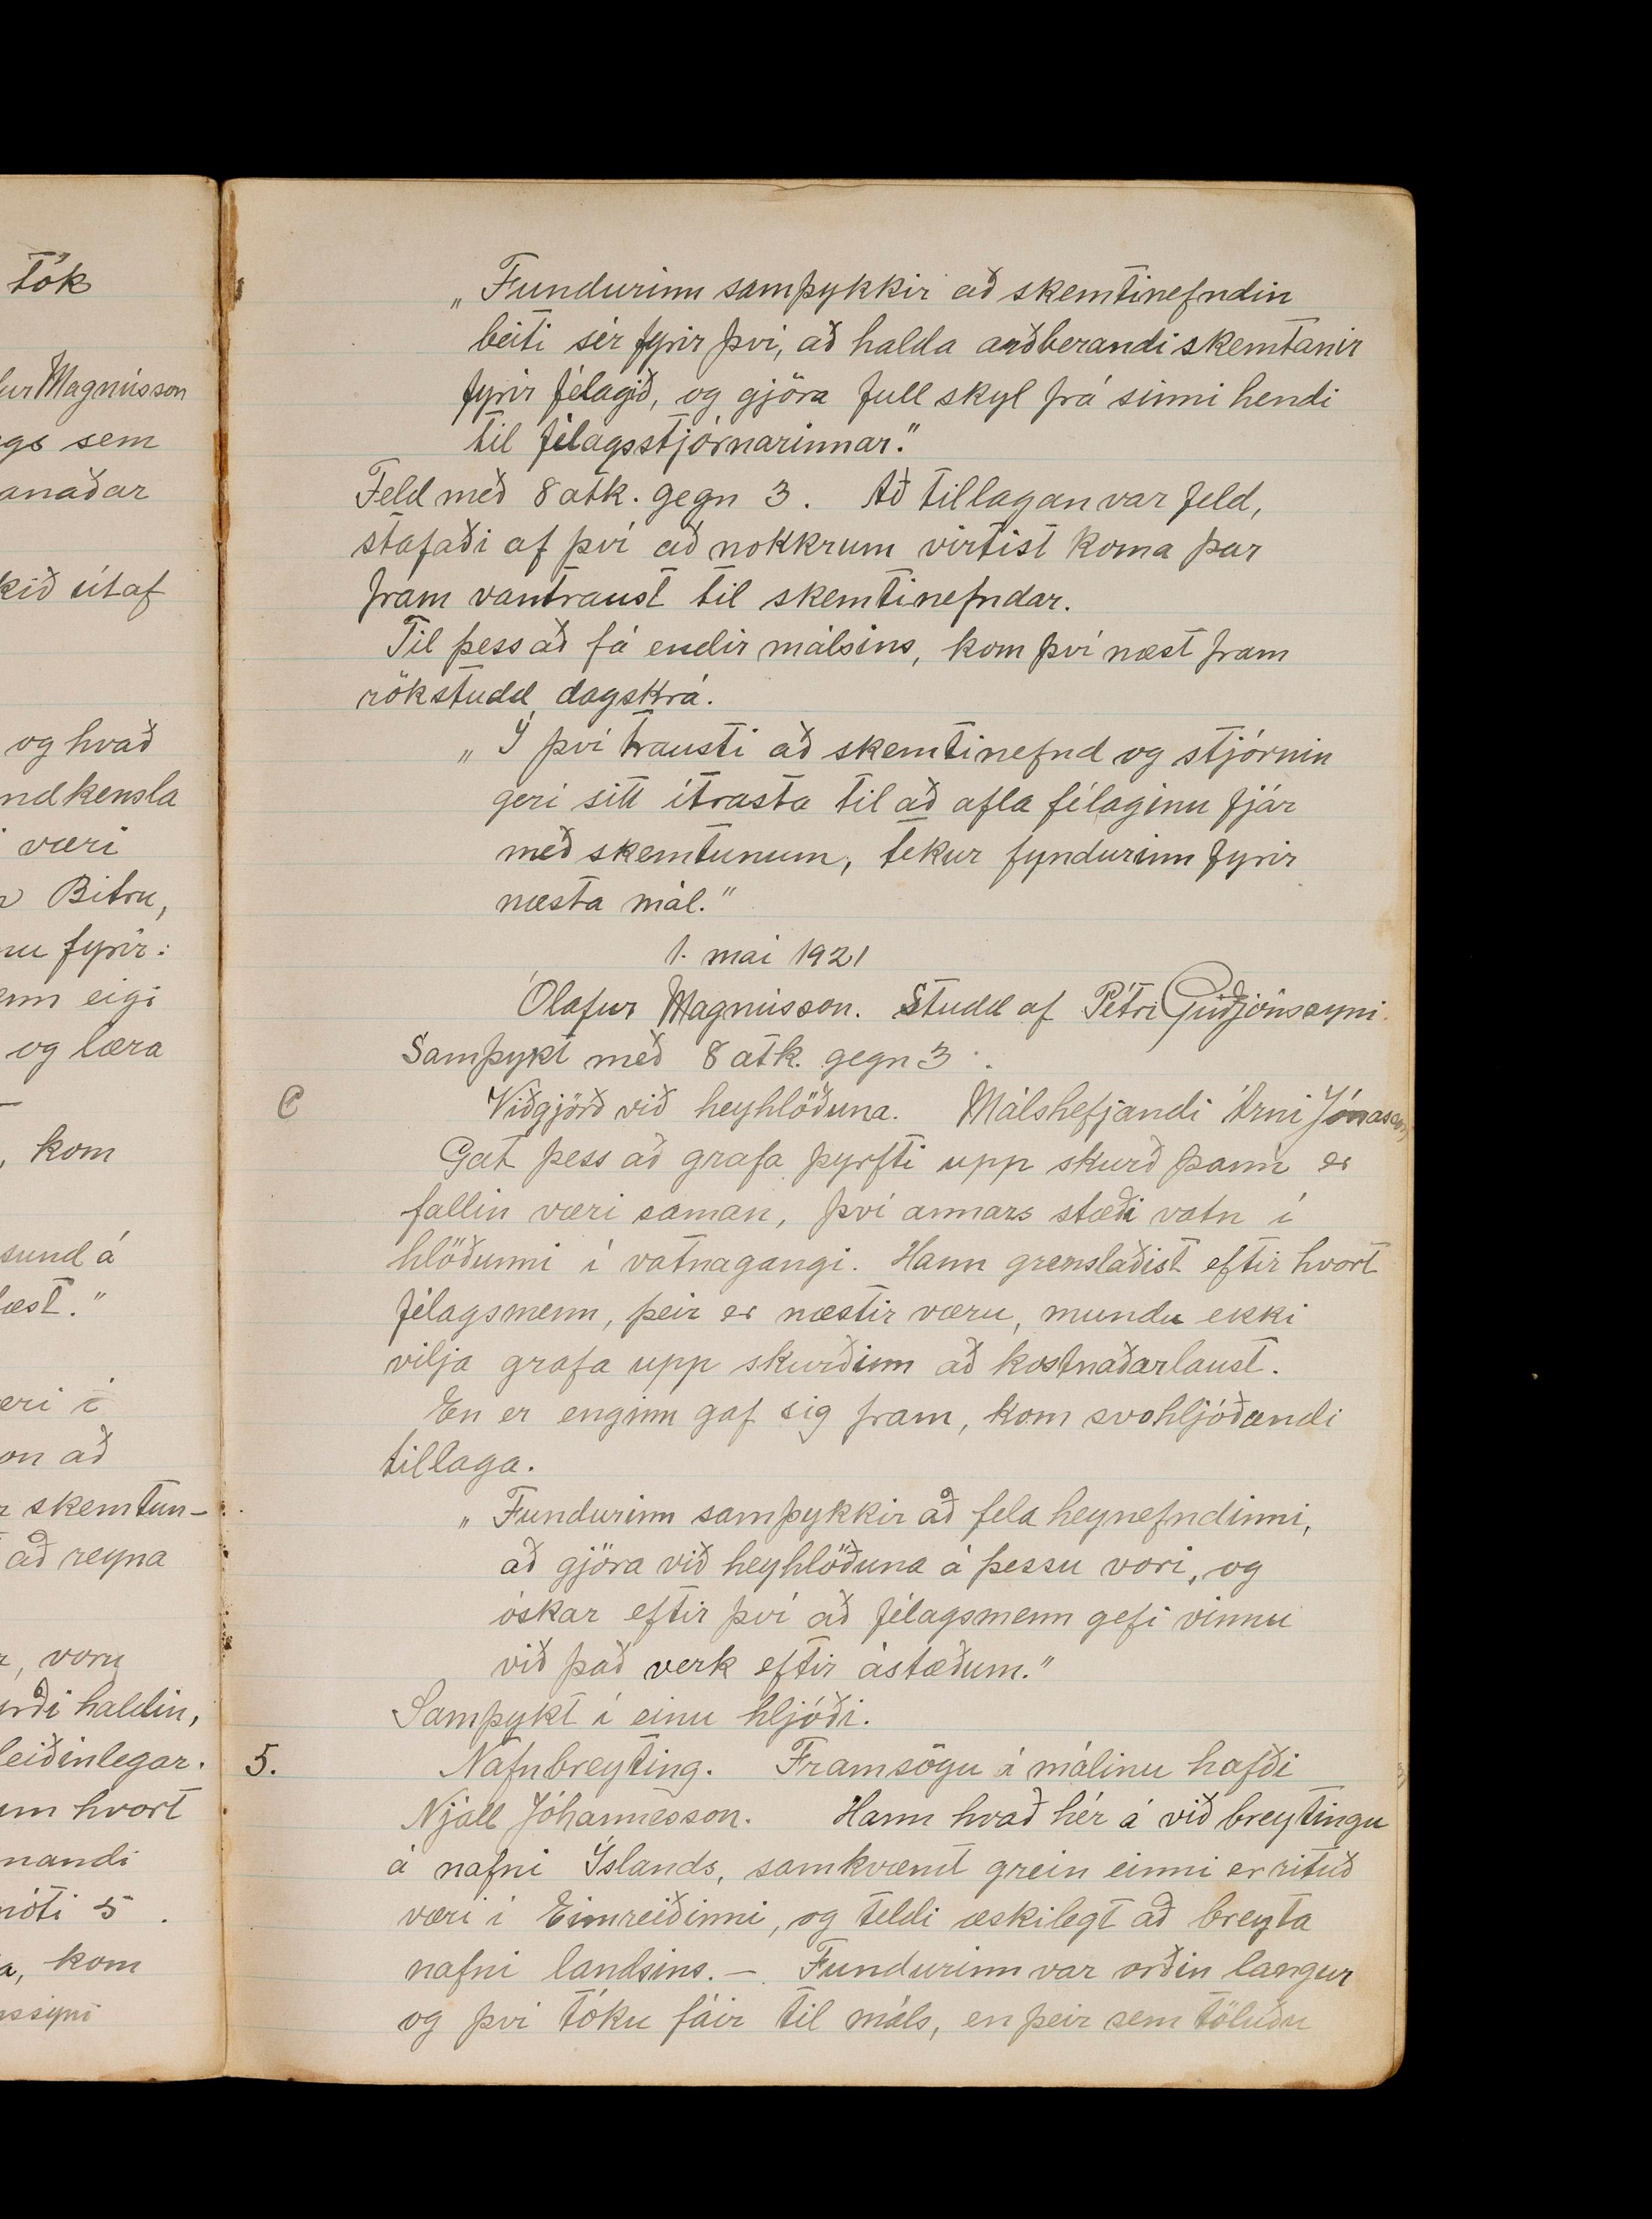 tók
ur Magnússon
gs sem
anaðar
kið útaf
og hvað
ndkensla
væri
Bitru,
nu fyrir:
enn eigi
og læra
, kom
sund á
læst."
æri í
on að
skemtun-
að reyna
, voru
urði haldin,
leiðinlegar.
um hvort
nandi
móti 5.
a, kom
nssyni
„Fundurinn samþykkir að skemtinefndin
beiti sér fyrir því, að halda arðberandi skemtanir
fyrir félagið, og gjöra full skyl frá sinni hendi
til félagsstjórnarinnar."
Feld með 8 atk. gegn 3. Að tillagan var feld,
stafaði af því að nokkrum virtist koma þar
fram vantraust til skemtinefndar.
Til þess að fá endir málsins, kom því næst fram
rökstudd dagskrá.
„Í því trausti að skemtinefnd og stjórnin
geri sitt ítrasta til að afla félaginu fjár
með skemtunum, tekur fyndurinn fyrir
næsta mál."
1. mai 1921
Ólafur Magnússon. Studd af Pétri Guðjónssyni.
Samþykt með 8 atk. gegn 3.
C Viðgjörð við heyhlöðuna. Málshefjandi Árni Jónasson
Gat þess að grafa þyrfti upp skurð þann er
fallin væri saman, því annars stæði vatn í
hlöðunni í vatnagangi. Hann grenslaðist eftir hvort
félagsmenn, þeir er næstir væru, mundu ekki
vilja grafa upp skurðinn að kostnaðarlaust.
En er enginn gaf sig fram, kom svohljóðandi
tillaga.
„Fundurinn samþykkir að fela heynefndinni,
að gjöra við heyhlöðuna á þessu vori, og
óskar eftir því að félagsmenn gefi vinnu
við það verk eftir ástæðum."
Samþykt í einu hljóði.
5. Nafnbreyting. Framsögu á málinu hafði
Njáll Jóhannesson. Hann kvað hér á við breytingu
á nafni Íslands, samkvæmt grein einni er rituð
væri í Eimreiðinni, og teldi æskilegt að breyta
nafni landsins. – Fundurinn var orðin langur
og því tóku fáir til máls, en þeir sem töluðu